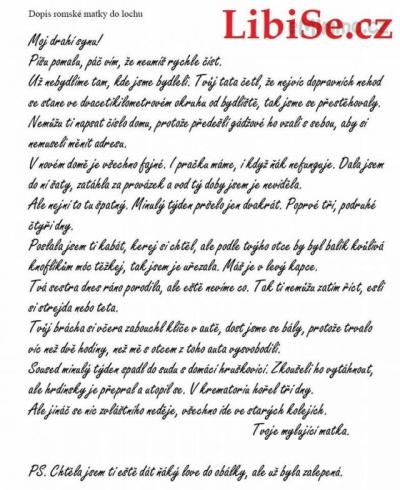 Dopis romské matky do lochu
LibiSe.cz
Moj drahí synu!
Píšu pomalu, páč vím, že neumíš rychle číst.
Už nebydlíme tam, kde jsme bydleli. Tvůj tata četl, že nejvíc dopravních nehod
se stane ve dvacetikilometrovém okruhu od bydliště, tak jsme se přestěhovaly.
Nemůžu ti napsat číslo domu, protože předešlí gádžové ho vzali s sebou, aby si
nemuseli měnit adresu.
V novém domě je všechno fajné. I pračku máme, i když ňák nefunguje. Dala jsem
do ní šaty, zatáhla za provázek a vod tý doby jsem je neviděla.
Ale nejní to tu špatný. Minulý týden pršelo jen dvakrát. Poprvé tři, podruhé
čtyři dny.
Poslala jsem ti kabát, kerej si chtěl, ale podle tvýho otce by byl balík kvůlivá
knoflíkům móc těžkej, tak jsem je uřezala. Máš je v levý kapce.
Tvá sestra dnes ráno porodila, ale eště nevíme co. Tak ti nemůžu zatím říct, esli
si strejda nebo teta.
Tvůj brácha si včera zabouchl klíče v autě, dost jsme se bály, protože trvalo
víc než dvě hodiny, než mě s otcem z toho auta vysvobodili.
Soused minulý týden spadl do sudu s domácí hruškovicí. Zkoušeli ho vytáhnout,
ale hrdinsky je přepral a utopil se. V krematoriu hořel tři dny.
Ale jináč se nic zvláštního neděje, všechno ide ve starých kolejích.
Tvoje mylující matka.
PS. Chtěla jsem ti eště dát ňáký love do obálky, ale už byla zalepená.